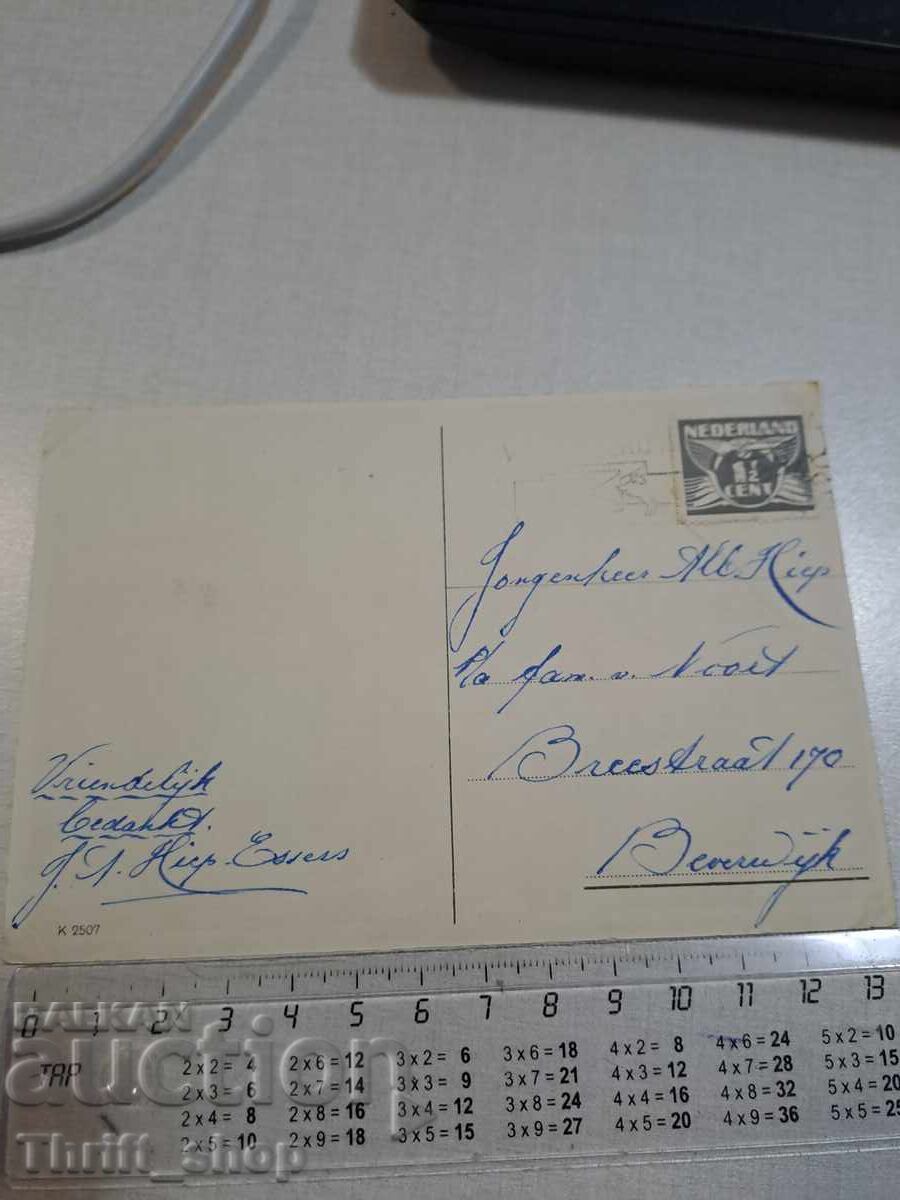 NEDERLAND
CENT
Jongenheer Alb. Hiep
p/a fam. v. Noort
Breestraat 170
Beverwijk
Vriendelijk
bedankt.
J. A. Hiep-Essers
K 2507
0 1 2 3 4 5 6 7 8 9 10 11 12 13
TAP
2 x 2 = 4 2 x 6 = 12 3 x 2 = 6 3 x 6 = 18 4 x 2 = 8 4 x 6 = 24 5 x 2 = 10
2 x 3 = 6 2 x 7 = 14 3 x 3 = 9 3 x 7 = 21 4 x 3 = 12 4 x 7 = 28 5 x 3 = 15
2 x 4 = 8 2 x 8 = 16 3 x 4 = 12 3 x 8 = 24 4 x 4 = 16 4 x 8 = 32 5 x 4 = 20
2 x 5 = 10 2 x 9 = 18 3 x 5 = 15 3 x 9 = 27 4 x 5 = 20 4 x 9 = 36 5 x 5 = 25
BALKAN
auction
Thrift_shop